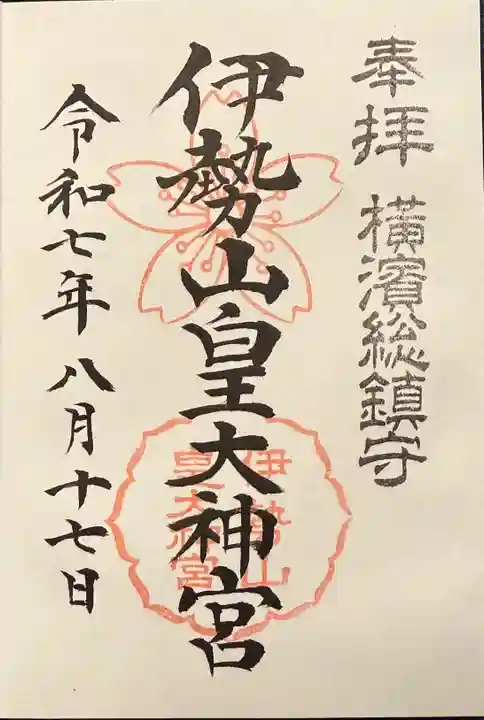 奉拝 橫濱総鎮守
伊勢山皇大神宮
伊勢山
皇大神宮
令和七年 八月十七日